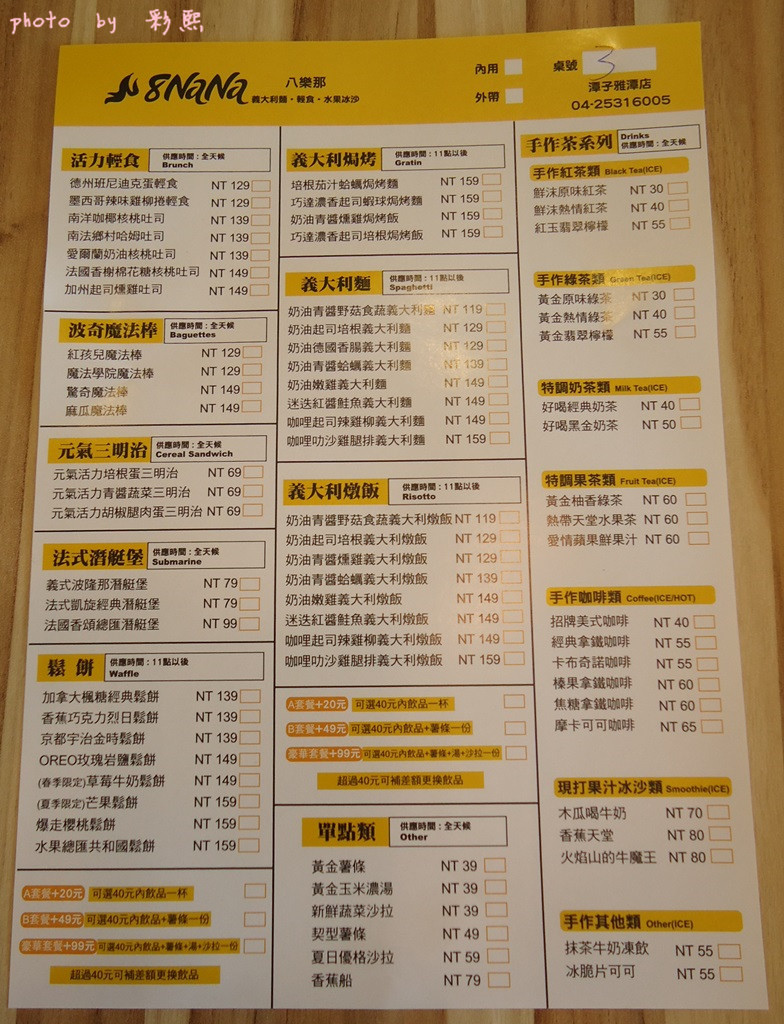 photo by 彩熙
8NaNa 八樂那
義大利麵・輕食・水果冰沙
內用
外帶
桌號 3
潭子雅潭店
04-25316005
活力輕食 Brunch 供應時間：全天候
德州班尼迪克蛋輕食 NT 129
墨西哥辣味雞柳捲輕食 NT 129
南洋咖椰核桃吐司 NT 139
南法鄉村哈姆吐司 NT 139
愛爾蘭奶油核桃吐司 NT 139
法國香榭棉花糖核桃吐司 NT 149
加州起司燻雞吐司 NT 149
波奇魔法棒 供應時間：全天候 Baguettes
紅孩兒魔法棒 NT 129
魔法學院魔法棒 NT 129
驚奇魔法棒 NT 149
麻瓜魔法棒 NT 149
元氣三明治 供應時間：全天候 Cereal Sandwich
元氣活力培根蛋三明治 NT 69
元氣活力青醬蔬菜三明治 NT 69
元氣活力胡椒腿肉蛋三明治 NT 69
法式潛艇堡 供應時間：全天候 Submarine
義式波隆那潛艇堡 NT 79
法式凱旋經典潛艇堡 NT 79
法國香頌總匯潛艇堡 NT 99
鬆餅 供應時間：11點以後 Waffle
加拿大楓糖經典鬆餅 NT 139
香蕉巧克力烈日鬆餅 NT 139
京都宇治金時鬆餅 NT 139
OREO玫瑰岩鹽鬆餅 NT 149
(春季限定)草莓牛奶鬆餅 NT 149
(夏季限定)芒果鬆餅 NT 159
爆走櫻桃鬆餅 NT 159
水果總匯共和國鬆餅 NT 159
A套餐+20元 可選40元內飲品一杯
B套餐+49元 可選40元內飲品+薯條一份
豪華套餐+99元 可選40元內飲品+薯條+湯+沙拉一份
超過40元可補差額更換飲品
義大利焗烤 供應時間：11點以後 Gratin
培根茄汁蛤蠣焗烤麵 NT 159
巧達濃香起司蝦球焗烤麵 NT 159
奶油青醬燻雞焗烤飯 NT 159
巧達濃香起司培根焗烤飯 NT 159
義大利麵 供應時間：11點以後 Spaghetti
奶油青醬野菇食蔬義大利麵 NT 119
奶油起司培根義大利麵 NT 129
奶油德國香腸義大利麵 NT 129
奶油青醬蛤蠣義大利麵 NT 139
奶油嫩雞義大利麵 NT 149
迷迭紅醬鮭魚義大利麵 NT 149
咖哩起司辣雞柳義大利麵 NT 149
咖哩叻沙雞腿排義大利麵 NT 159
義大利燉飯 供應時間：11點以後 Risotto
奶油青醬野菇食蔬義大利燉飯 NT 119
奶油起司培根義大利燉飯 NT 129
奶油青醬燻雞義大利燉飯 NT 129
奶油青醬蛤蠣義大利燉飯 NT 139
奶油嫩雞義大利燉飯 NT 149
迷迭紅醬鮭魚義大利燉飯 NT 149
咖哩起司辣雞柳義大利燉飯 NT 149
咖哩叻沙雞腿排義大利燉飯 NT 159
A套餐+20元 可選40元內飲品一杯
B套餐+49元 可選40元內飲品+薯條一份
豪華套餐+99元 可選40元內飲品+薯條+湯+沙拉一份
超過40元可補差額更換飲品
單點類 供應時間：全天候 Other
黃金薯條 NT 39
黃金玉米濃湯 NT 39
新鮮蔬菜沙拉 NT 39
契型薯條 NT 49
夏日優格沙拉 NT 59
香蕉船 NT 79
手作茶系列 Drinks 供應時間：全天候
手作紅茶類 Black Tea(ICE)
鮮沫原味紅茶 NT 30
鮮沫熱情紅茶 NT 40
紅玉翡翠檸檬 NT 55
手作綠茶類 Green Tea(ICE)
黃金原味綠茶 NT 30
黃金熱情綠茶 NT 40
黃金翡翠檸檬 NT 55
特調奶茶類 Milk Tea(ICE)
好喝經典奶茶 NT 40
好喝黑金奶茶 NT 50
特調果茶類 Fruit Tea(ICE)
黃金柚香綠茶 NT 60
熱帶天堂水果茶 NT 60
愛情蘋果鮮果汁 NT 60
手作咖啡類 Coffee(ICE/HOT)
招牌美式咖啡 NT 40
經典拿鐵咖啡 NT 55
卡布奇諾咖啡 NT 55
榛果拿鐵咖啡 NT 60
焦糖拿鐵咖啡 NT 60
摩卡可可咖啡 NT 65
現打果汁冰沙類 Smoothie(ICE)
木瓜喝牛奶 NT 70
香蕉天堂 NT 80
火焰山的牛魔王 NT 80
手作其他類 Other(ICE)
抹茶牛奶凍飲 NT 55
冰脆片可可 NT 55